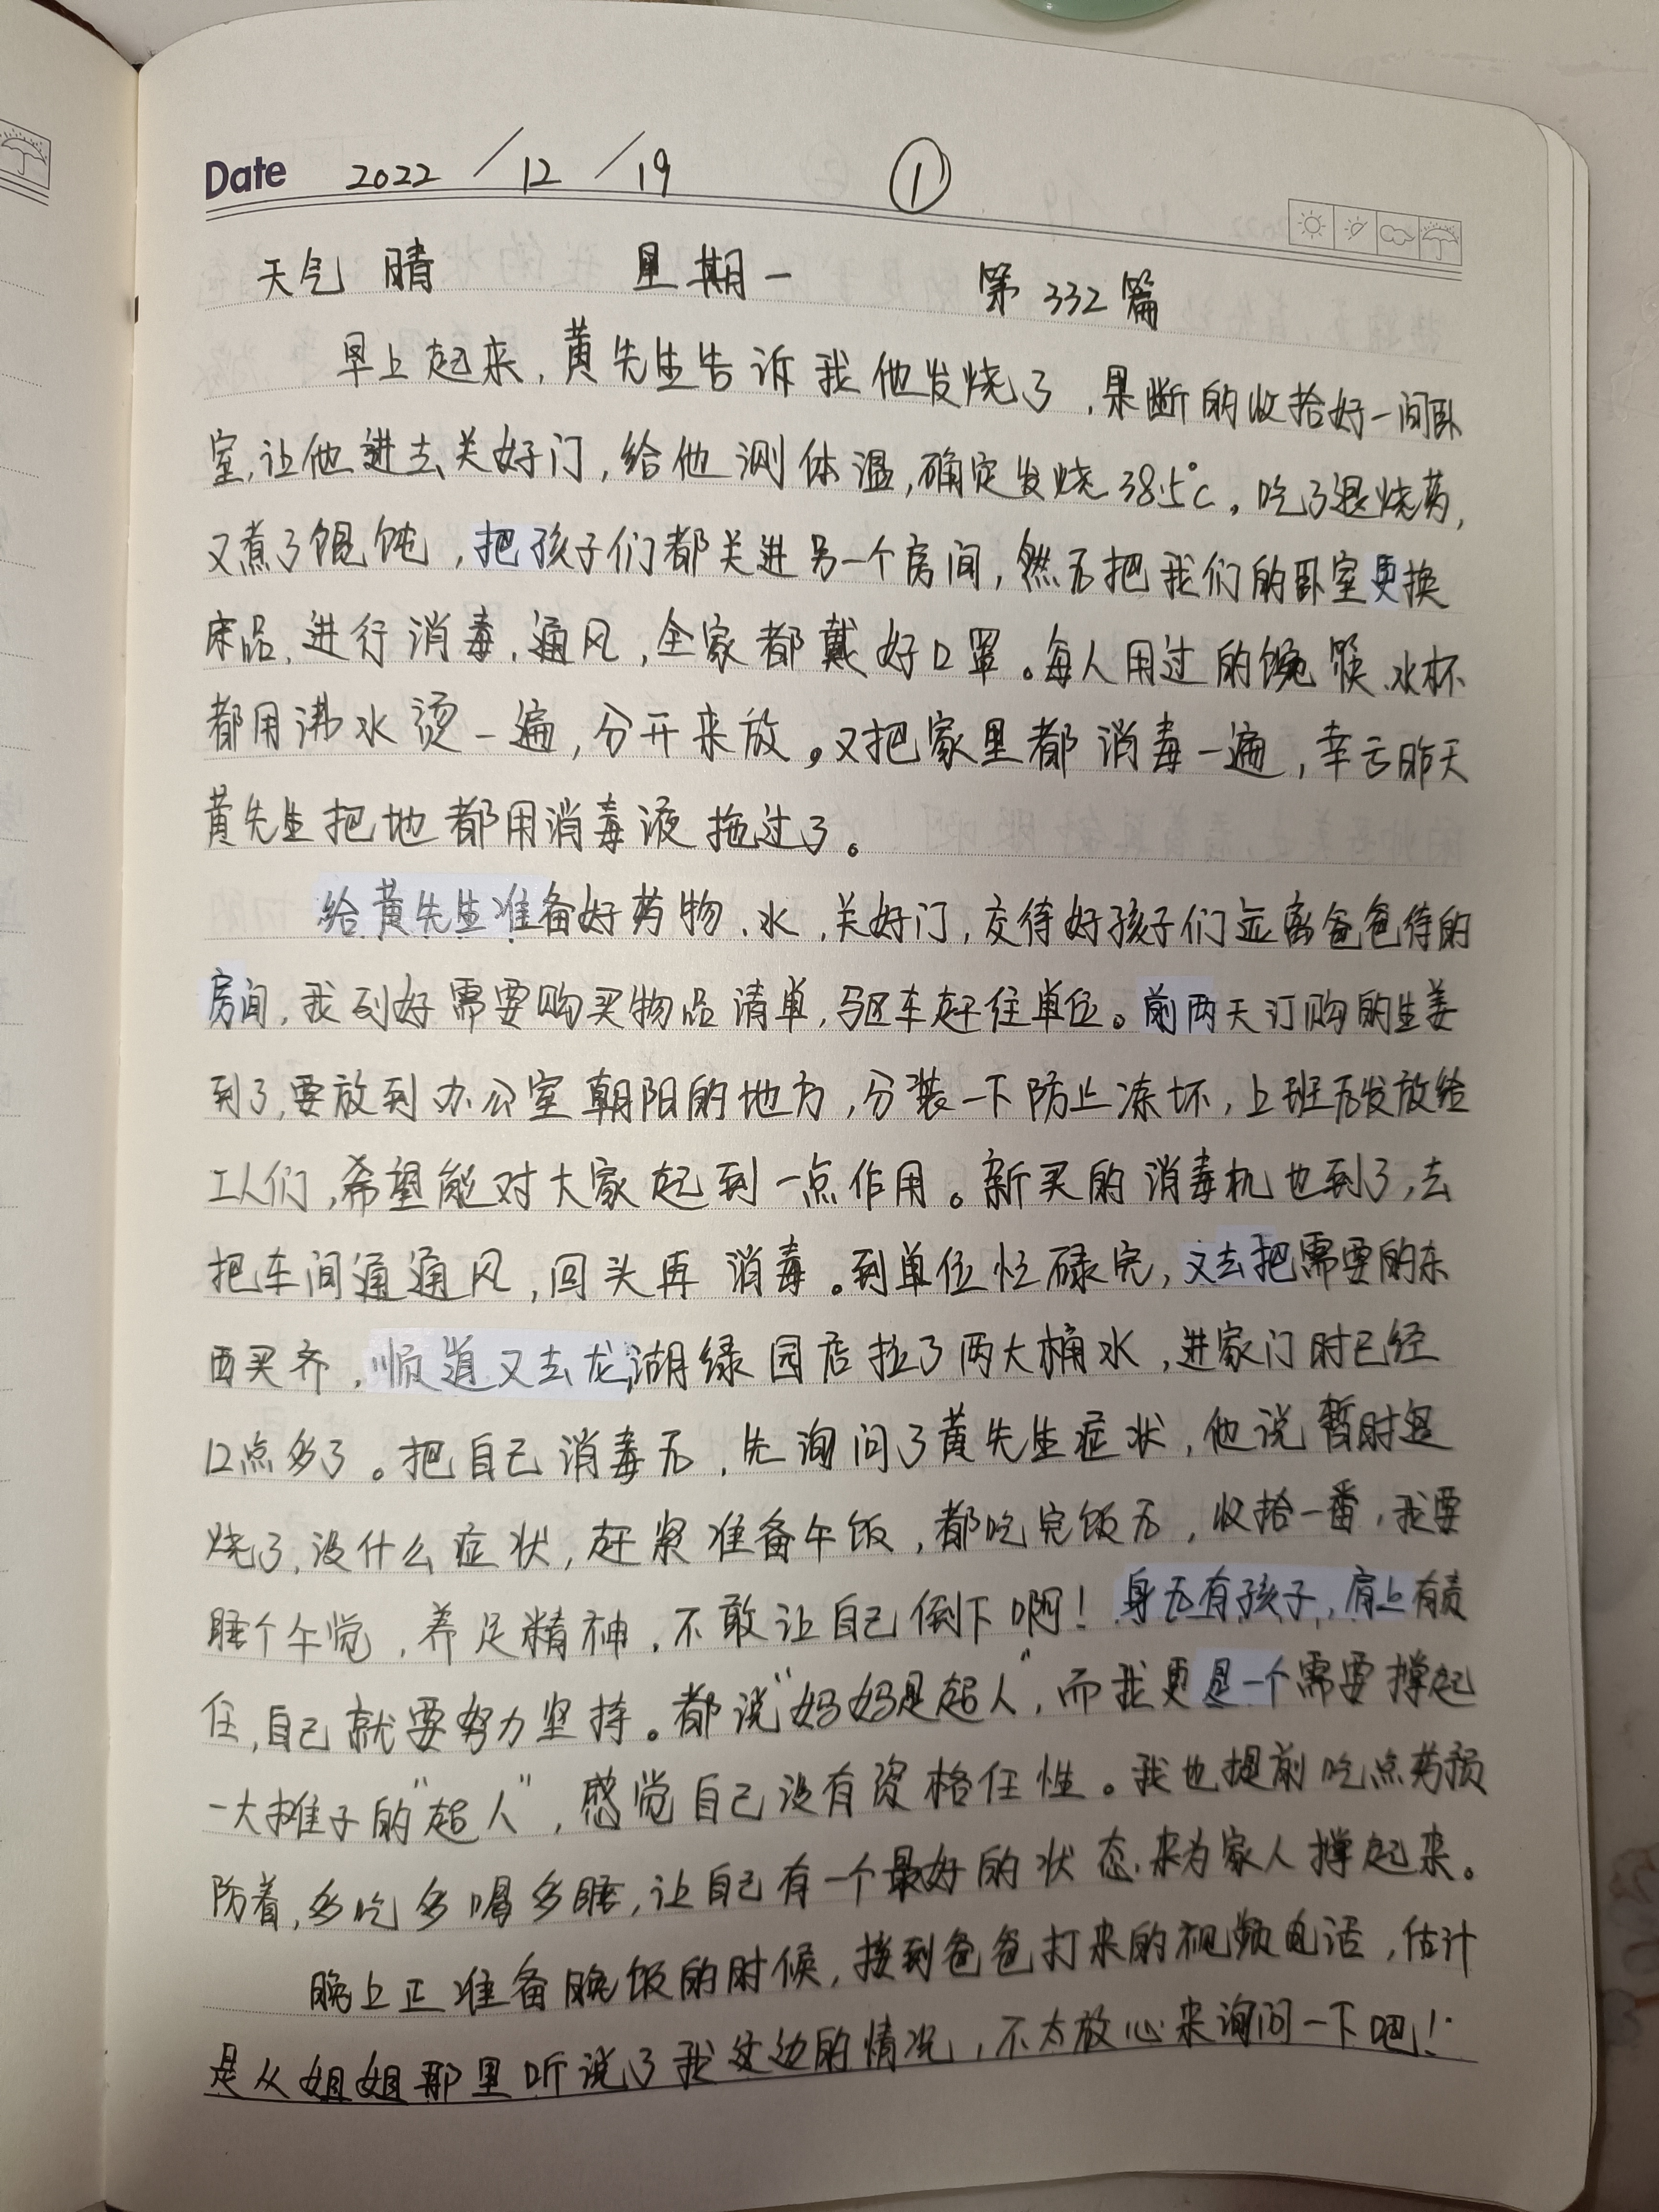 Date 2022/12/19 ①
天气 晴 星期一 第332篇
早上起来,黄先生告诉我他发烧了,果断的收拾好一间卧
室,让他进去关好门,给他测体温,确定发烧38.5℃。吃了退烧药,
又煮了馄饨,把孩子们都关进另一个房间,然后把我们的卧室更换
床品、进行消毒、通风,全家都戴好口罩。每人用过的碗筷、水杯
都用沸水烫一遍,分开来放。又把家里都消毒一遍,幸亏昨天
黄先生把地都用消毒液拖过了。
给黄先生准备好药物、水,关好门,交待好孩子们远离爸爸待的
房间,我列好需要购买物品清单,驱车赶往单位。前两天订购的生姜
到了,要放到办公室朝阳的地方,分装一下防止冻坏,上班后发放给
工人们,希望能对大家起到一点作用。新买的消毒机也到了,去
把车间通通风,回头再消毒。到单位忙碌完,又去把需要的东
西买齐,顺道又去龙湖绿园店拉了两大桶水,进家门时已经
12点多了。把自己消毒后,先询问了黄先生症状,他说暂时退
烧了,没什么症状,赶紧准备午饭,都吃完饭后,收拾一番,我要
睡个午觉,养足精神,不敢让自己倒下啊!身后有孩子,肩上有责
任,自己就要努力坚持。都说“妈妈是超人”,而我更是一个需要撑起
一大摊子的“超人”,感觉自己没有资格任性。我也提前吃点药预
防着,多吃多喝多睡,让自己有一个最好的状态,来为家人撑起来。
晚上正准备晚饭的时候,接到爸爸打来的视频电话,估计
是从姐姐那里听说了我这边的情况,不太放心来询问一下吧!